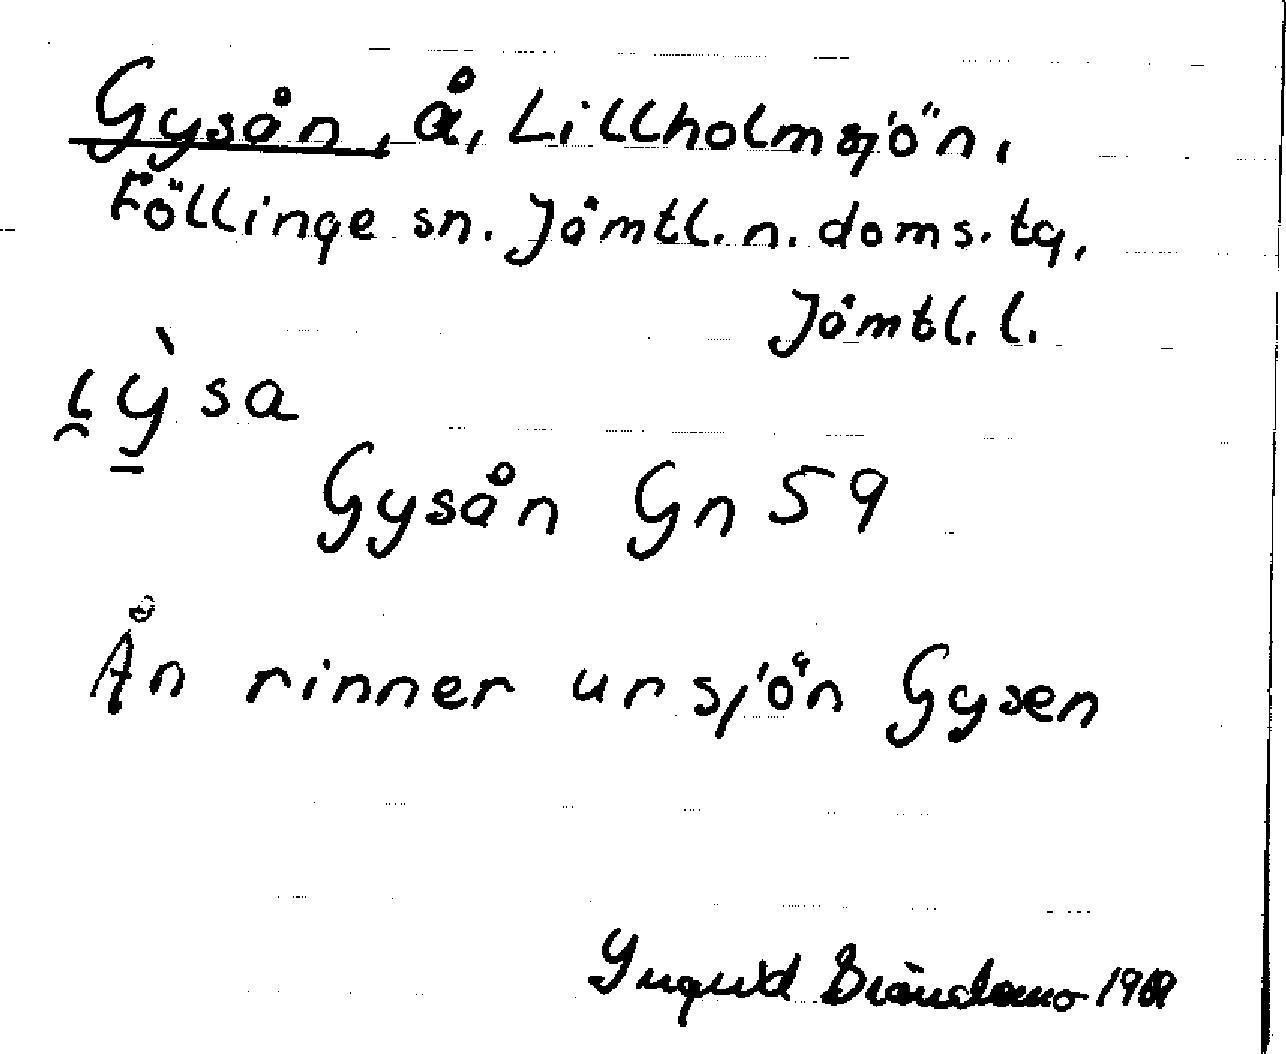 Gysån, å, Lillholmsjön,
Föllinge sn. Jämtl. n. doms. tg,
Jämtl. l.
Gysån Gn 59
Ån rinner ur sjön Gysen
Ingrid